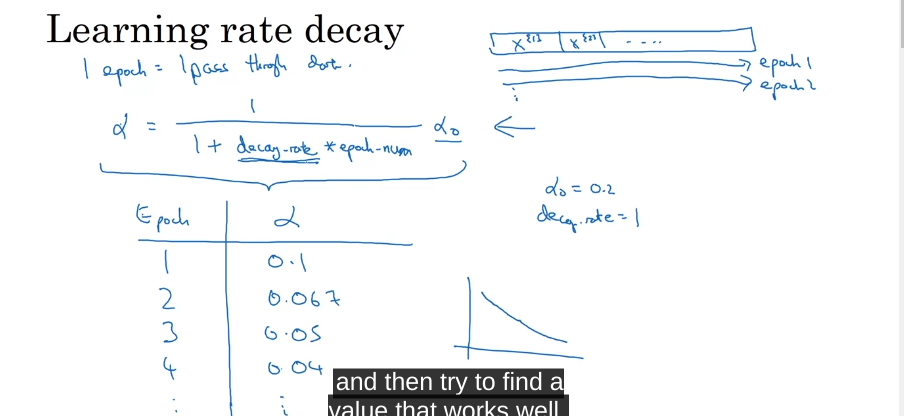 Learning rate decay
1 epoch = 1 pass through data.
X^{1} | X^{2} | ....
→ epoch 1
→ epoch 2
⋮
α = 1 / (1 + decay-rate * epoch-num) α₀ ←
α₀ = 0.2
decay-rate = 1
Epoch | α
1 | 0.1
2 | 0.067
3 | 0.05
4 | 0.04
⋮ | ⋮
and then try to find a
value that works well